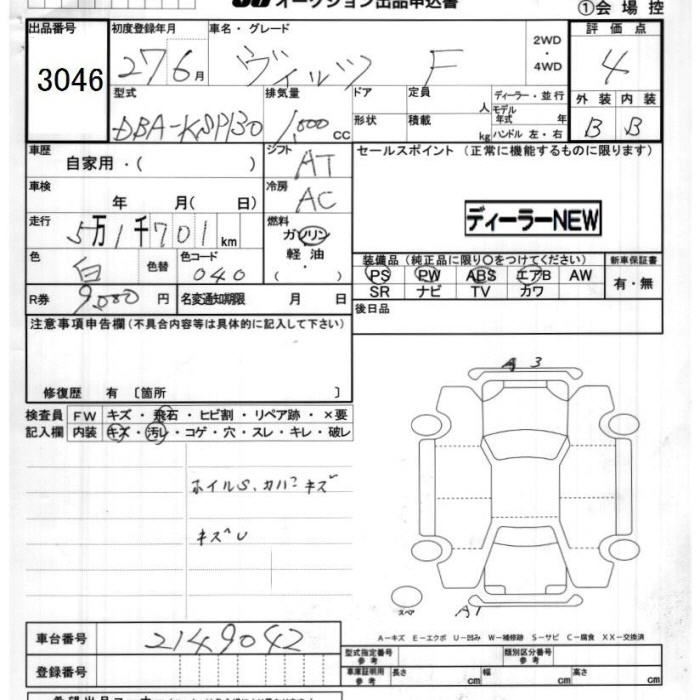 オークション出品申込書
①会場控
出品番号 3046
初度登録年月 27 6月
車名・グレード ヴィッツ F
2WD・4WD
評価点 4
外装 内装
B B
型式 DBA-KSP130
排気量 1,000 cc
ドア 形状
定員 人
積載 kg
ディーラー・並行
モデル年式 年
ハンドル 左・右
車歴 自家用・( )
シフト AT
セールスポイント (正常に機能するものに限ります)
車検 年 月( 日)
冷房 AC
ディーラーNEW
走行 5万1千701km
燃料 ガソリン 軽油・( )
色 白 色替
色コード 040
装備品(純正品に限り○をつけてください)
PS PW ABS エアB AW
SR ナビ TV カワ
新車保証書 有・無
R券 9,080円
名変通知期限 月 日
後日品
注意事項申告欄(不具合内容等は具体的に記入して下さい)
修復歴 有 〔箇所 〕
検査員記入欄
FW キズ・飛石・ヒビ割・リペア跡・×要
内装 キズ・汚レ・コゲ・穴・スレ・キレ・破レ
A3
ホイルS、カバーキズ
キズヘU
スペア
A1
A−キズ E−エクボ U−凹み W−補修跡 S−サビ C−腐食 XX−交換済
車台番号 2149042
登録番号
型式指定番号 参考
類別区分番号 参考
車庫証明用 参考 長さ cm 幅 cm 高さ cm